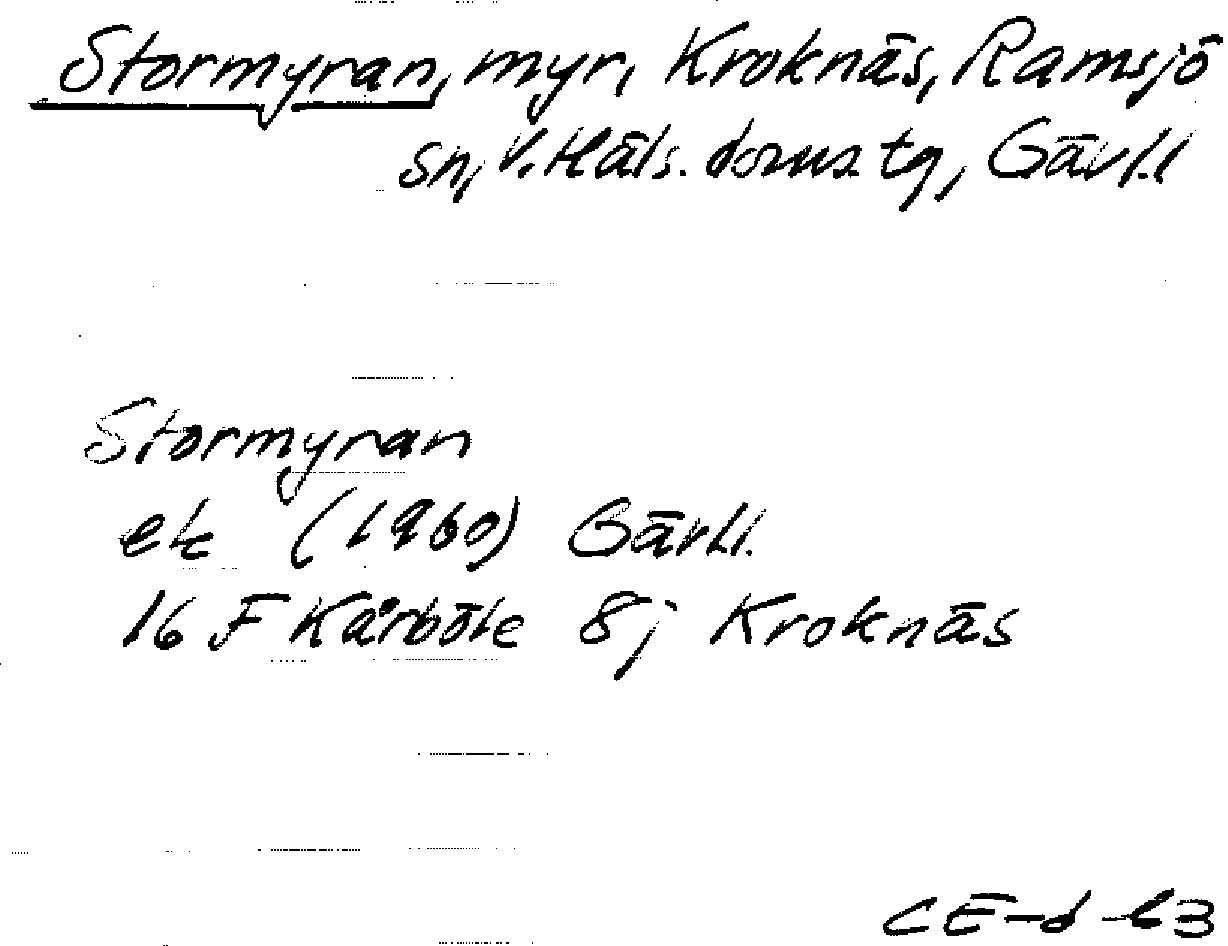 Stormyran, myr, Kroknäs, Ramsjö
sn, V. Häls. doms. tg, Gävl.l
Stormyran
ek (1960) Gävl.l.
16 F Kårböle 8j Kroknäs